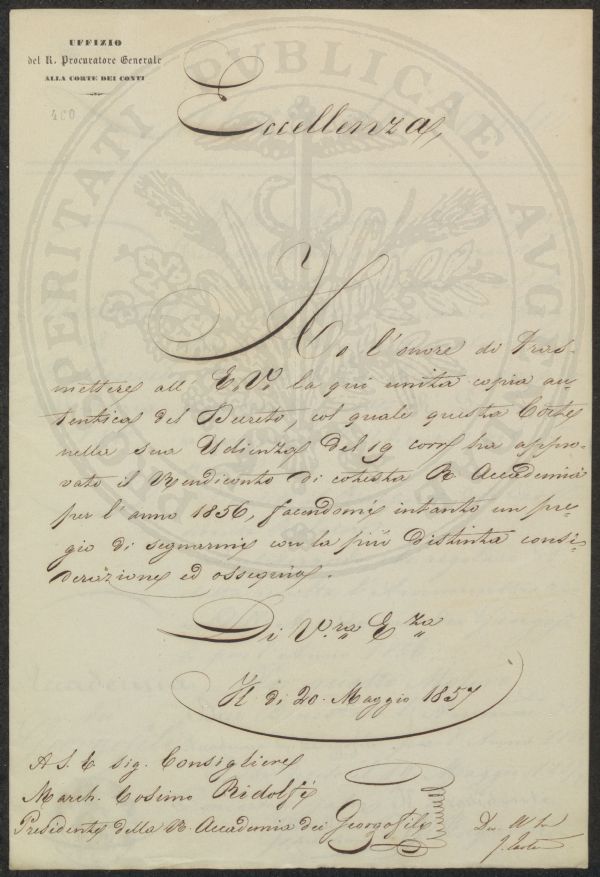 UFFIZIO
del R. Procuratore Generale
ALLA CORTE DEI CONTI
400
Eccellenza,
Ho l'onore di Tras-
mettere all' E. V. la qui unita copia au
tentica del Decreto, col quale questa Corte
nella sua Udienza del 19 corre ha appro-
vato il Rendiconto di cotesta R. Accademia
per l'anno 1856, facendomi intanto un pre-
gio di segnarmi con la più distinta consi-
derazione ed ossequio.
Di V.ra E.za
Il di 20. Maggio 1857
A S. E sig. Consigliere
March. Cosimo Ridolfi
Presidente della R. Accademia dei Georgofili
PROSPERITATI PUBLICAE AUG